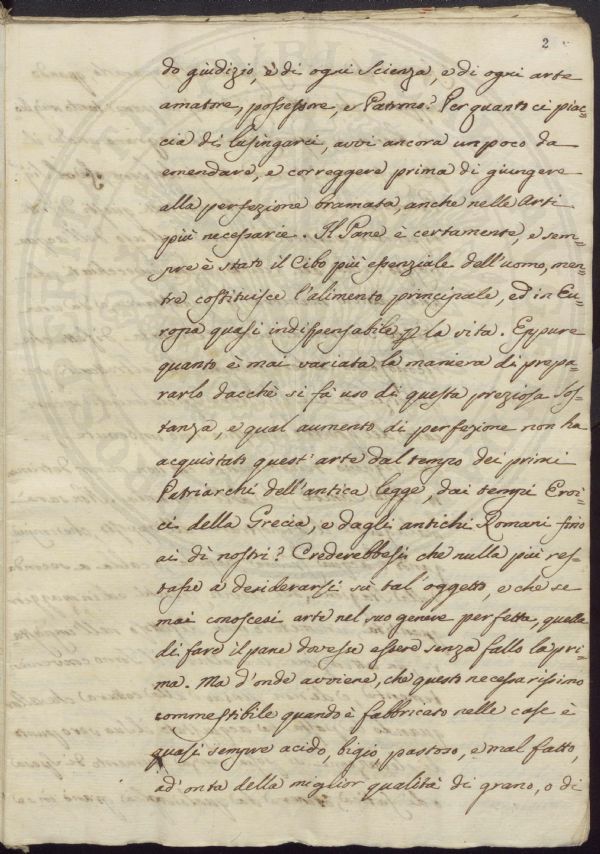 2
do giudizio, e di ogni Scienza, e di ogni arte
amatore, possessore, e Patrono? Per quanto ci piac=
cia di lusingarci, avvi ancora un poco da
emendare, e correggere prima di giungere
alla perfezione bramata, anche nelle Arti
più necessarie. Il Pane è certamente, e sem=
pre è stato il Cibo più essenziale dell'uomo, men=
tre costituisce l'alimento principale, ed in Eu=
ropa quasi indispensabile p la vita. Eppure
quanto è mai variata la maniera di prepa=
rarlo dacchè si fà uso di questa preziosa Sos=
tanza, e qual aumento di perfezione non ha
acquistato quest'arte dal tempo dei primi
Patriarchi dell'antica legge, dai tempi Eroi=
ci della Grecia, e dagli antichi Romani fino
ai dì nostri? Crederebbesi che nulla più res=
tasse a desiderarsi sù tal'oggetto, e che se
mai conoscesi arte nel suo genere perfetta, quella
di fare il pane dovesse essere senza fallo la pri=
ma. Ma d'onde avviene, che questo necessarissimo
commestibile quando è fabbricato nelle case è
quasi sempre acido, bigio, pastoso, e mal fatto,
ad'onta della miglior qualità di grano, o di